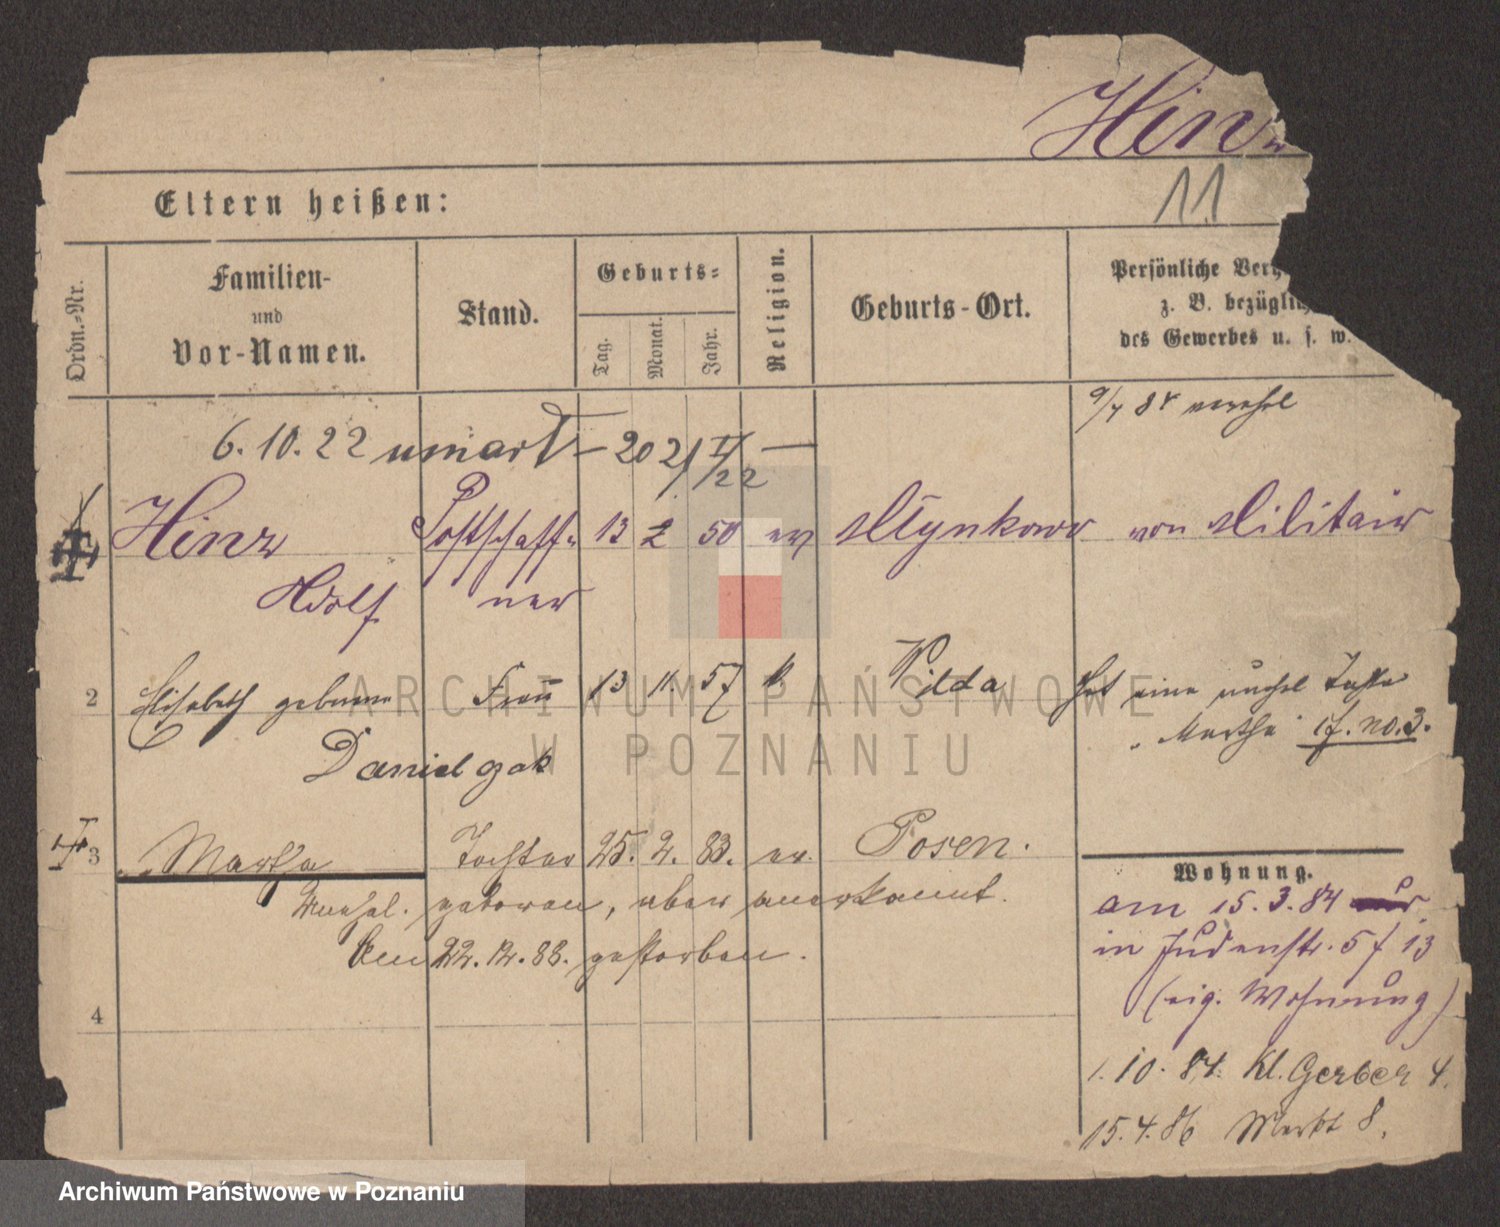 Hinz
11
Eltern heißen:
Ordn.-Nr.
Familien-
und
Vor-Namen.
Stand.
Geburts-
Tag.
Monat.
Jahr.
Religion.
Geburts-Ort.
Persönliche Verh
z. B. bezüglich
des Gewerbes u. s. w.
9/7 84 verehel
6. 10. 22 – 20 21 I/22 –
Hinz Postschaff- 13 2 50 ev Mlynkowo von Militair
Adolf ner
2 Elisabeth geborene Frau 13 11. 57 k. Wilda Hat eine unehel Tochter
Danielczak Martha cf. no. 3.
3 Martha Tochter 25. 2. 83. ev. Posen.
Unehel. geboren, aber anerkannt.
Am 22. 12. 88. gestorben.
4
Wohnung.
am 15. 3. 84
in Judenstr. 5 f 13
(eig. Wohnung)
1. 10. 84. Kl. Gerber 4.
15. 4. 86 Markt 8.
ARCHIWUM PAŃSTWOWE
W POZNANIU
Archiwum Państwowe w Poznaniu